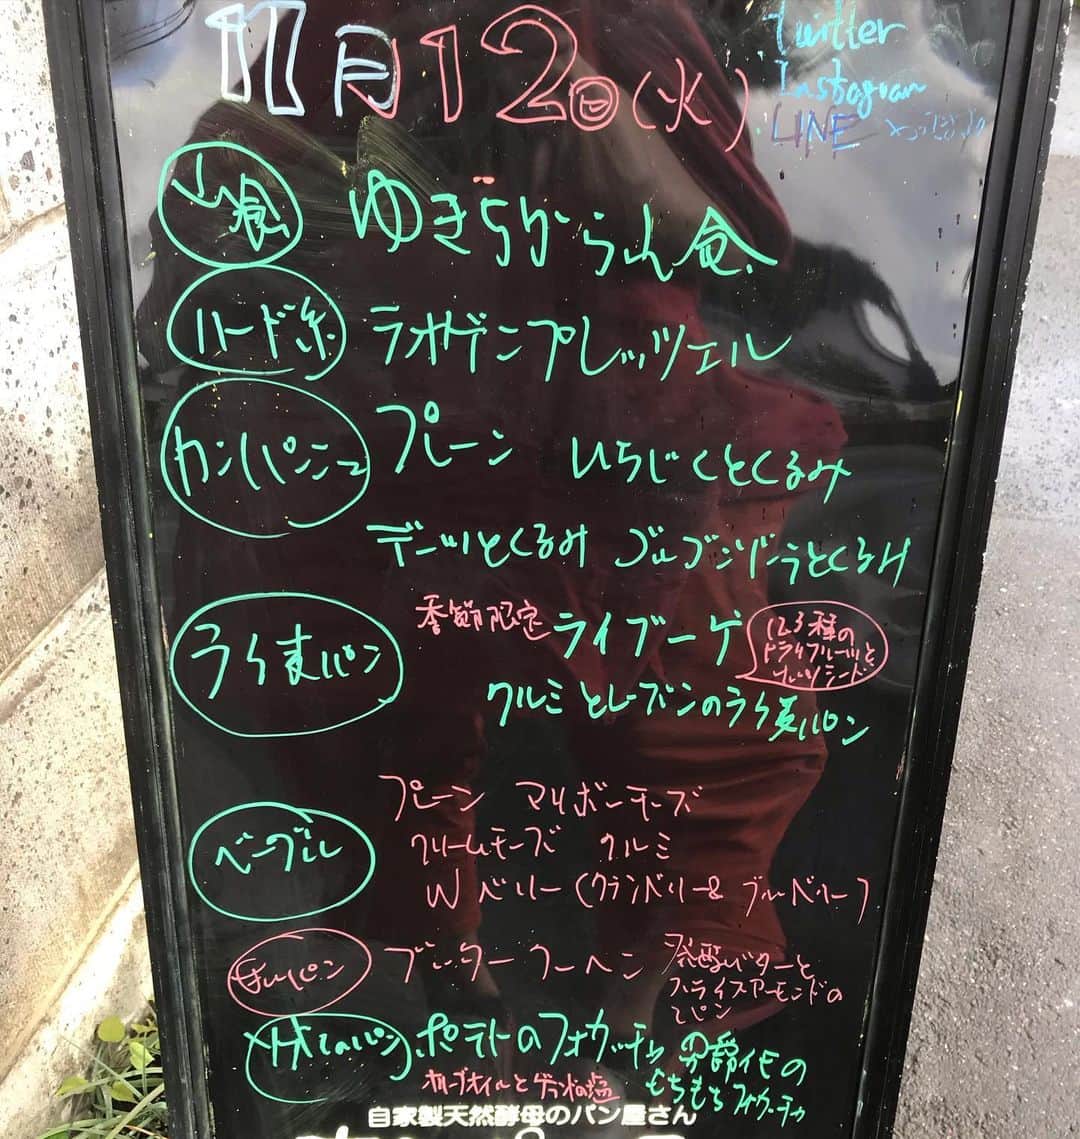 11月12日(火)
Twitter
Instagram
LINE やってます
山食
ゆきちかられん食
ハード系
ラオゲンプレッツェル
カンパーニュ
プレーン いちじくとくるみ
デーツとくるみ ゴルゴンゾーラとくるみ
ライ麦パン
季節限定 ライブーゲ
12.3種の
ドライフルーツと
クルミとレーズンのライ麦パン
ベーグル
プレーン マリボーチーズ
クリームチーズ クルミ
Wベリー(クランベリー&ブルーベリー)
甘いパン
ブッタークーヘン
発酵バターと
スライスアーモンドの
パン
ポテトのフォカッチャ
もちもちフォカッチャ
オリーブオイルとゲランドの塩
自家製天然酵母のパン屋さん